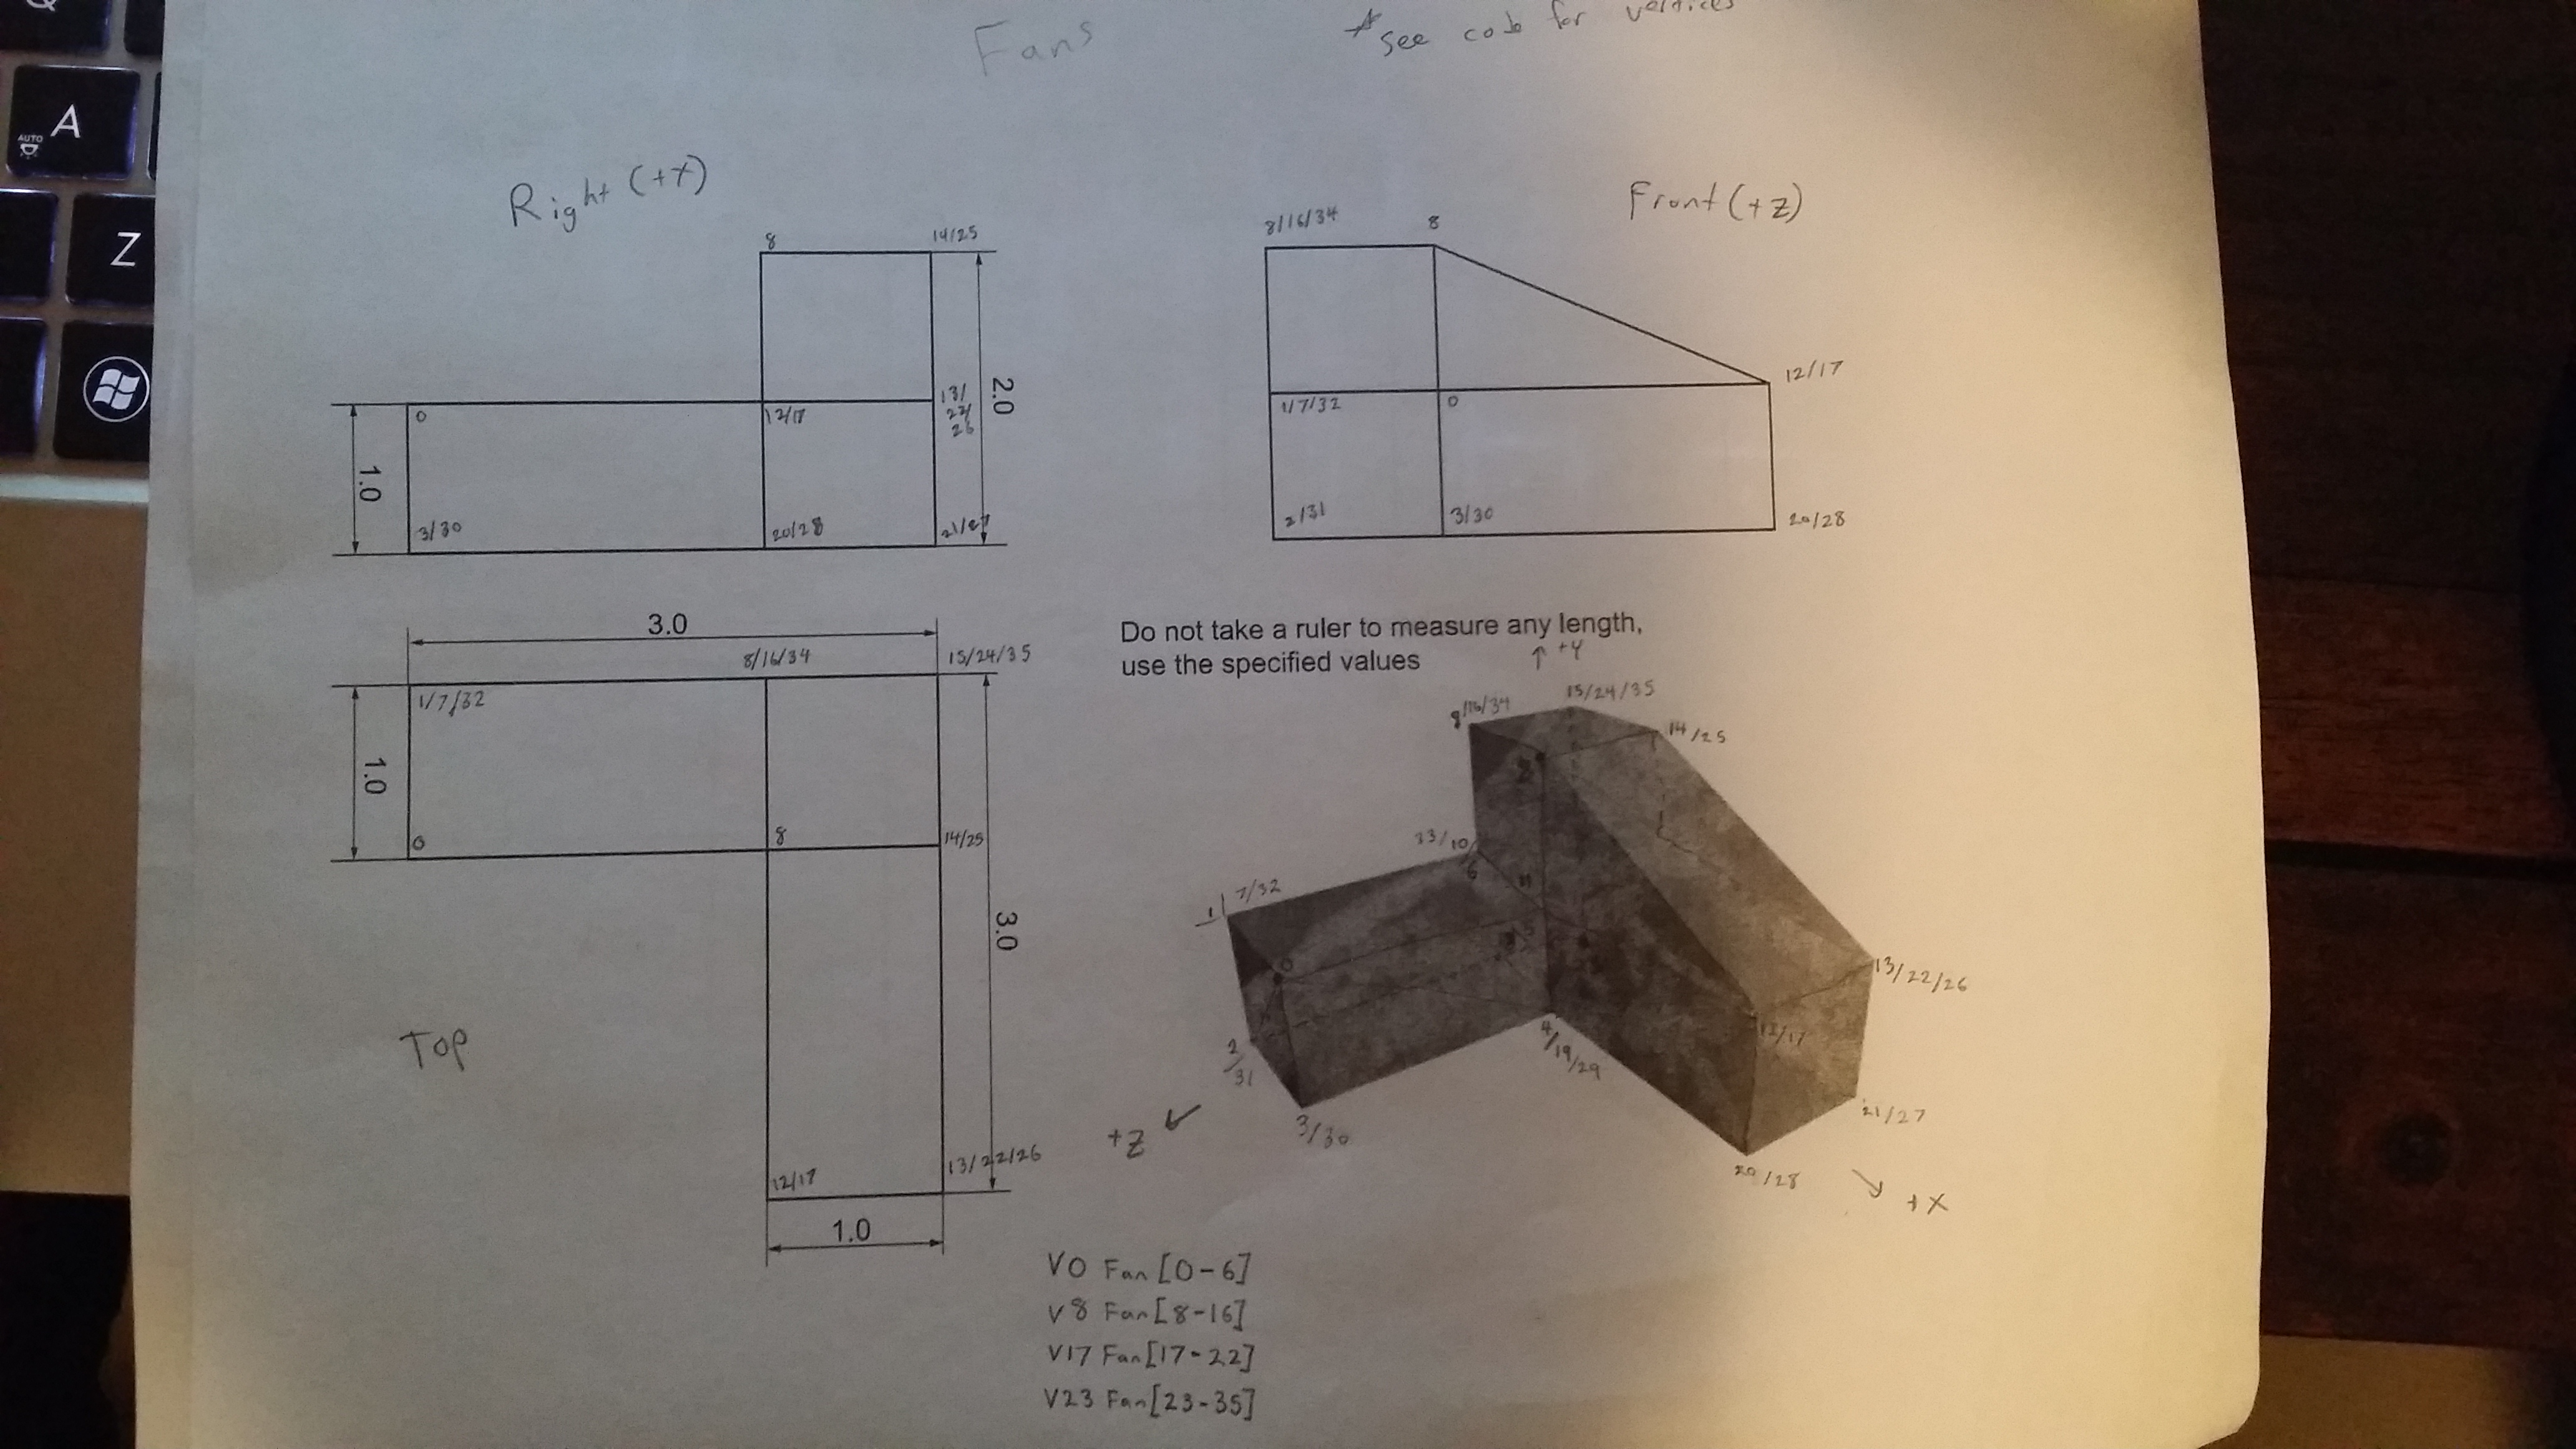 Fans
* See code for vertices
A
AUTO
Z
Right (+X)
8
14/25
0
12/17
13/
22/
26
2.0
1.0
3/30
20/28
21/27
Front (+Z)
8/16/34
8
12/17
1/7/32
0
2/31
3/30
20/28
3.0
8/16/34
15/24/35
1/7/32
1.0
0
8
14/25
3.0
Top
12/17
13/22/26
1.0
Do not take a ruler to measure any length,
use the specified values
+Y
8/16/34
15/24/35
14/25
23/10/
6
1/7/32
0
13/22/26
12/17
2/
31
4/19/29
3/30
21/27
20/28
+Z
+X
V0 Fan [0-6]
V8 Fan [8-16]
V17 Fan [17-22]
V23 Fan [23-35]